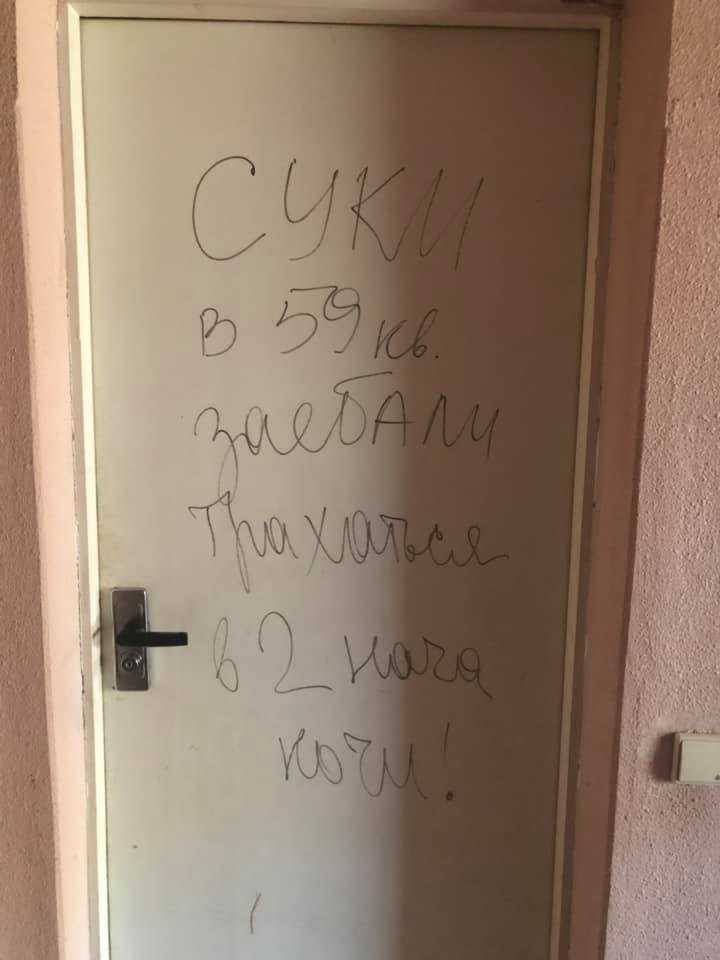 СУКИ
в 59 кв.
заебАЛИ
трахаться
в 2 часа
ночи!